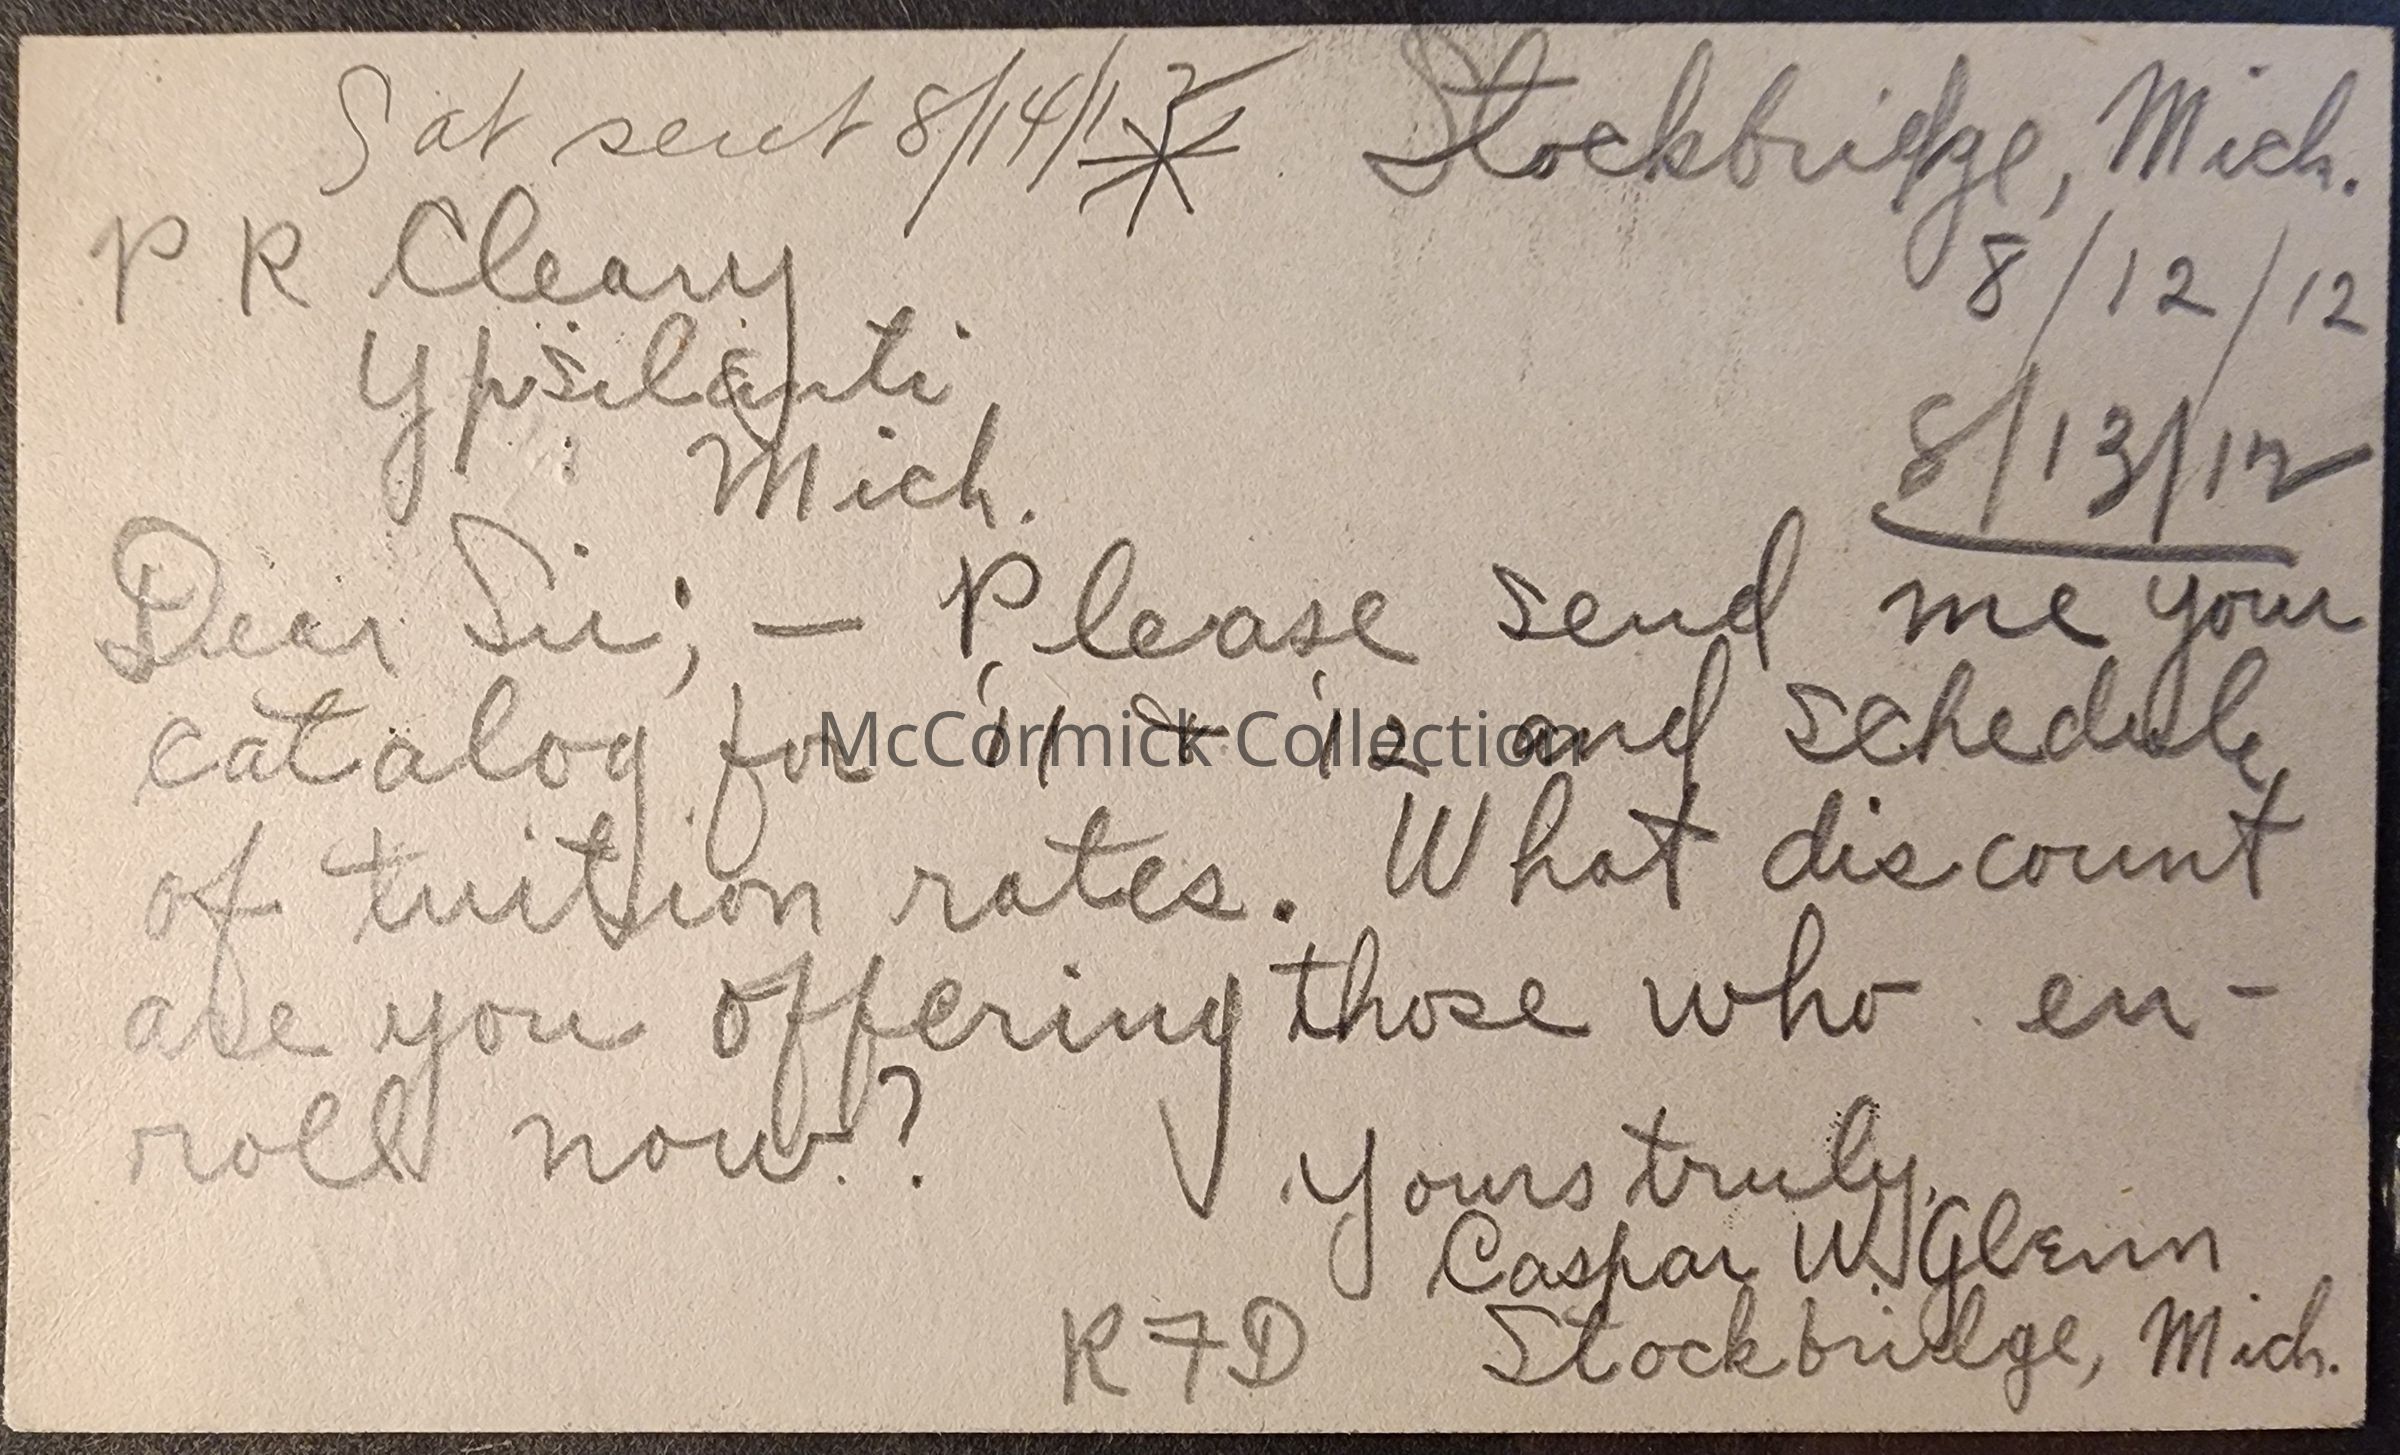 Sat sent 8/14/12
Stockbridge, Mich.
8/12/12
P R Cleary
Ypsilanti,
Mich.
8/13/12
Dear Sir; — Please send me your
catalog for '11 & '12 and schedule
of tuition rates. What discount
are you offering those who en-
roll now?
Yours truly,
Caspar W. Glenn
R F D Stockbridge, Mich.
McCormick Collection